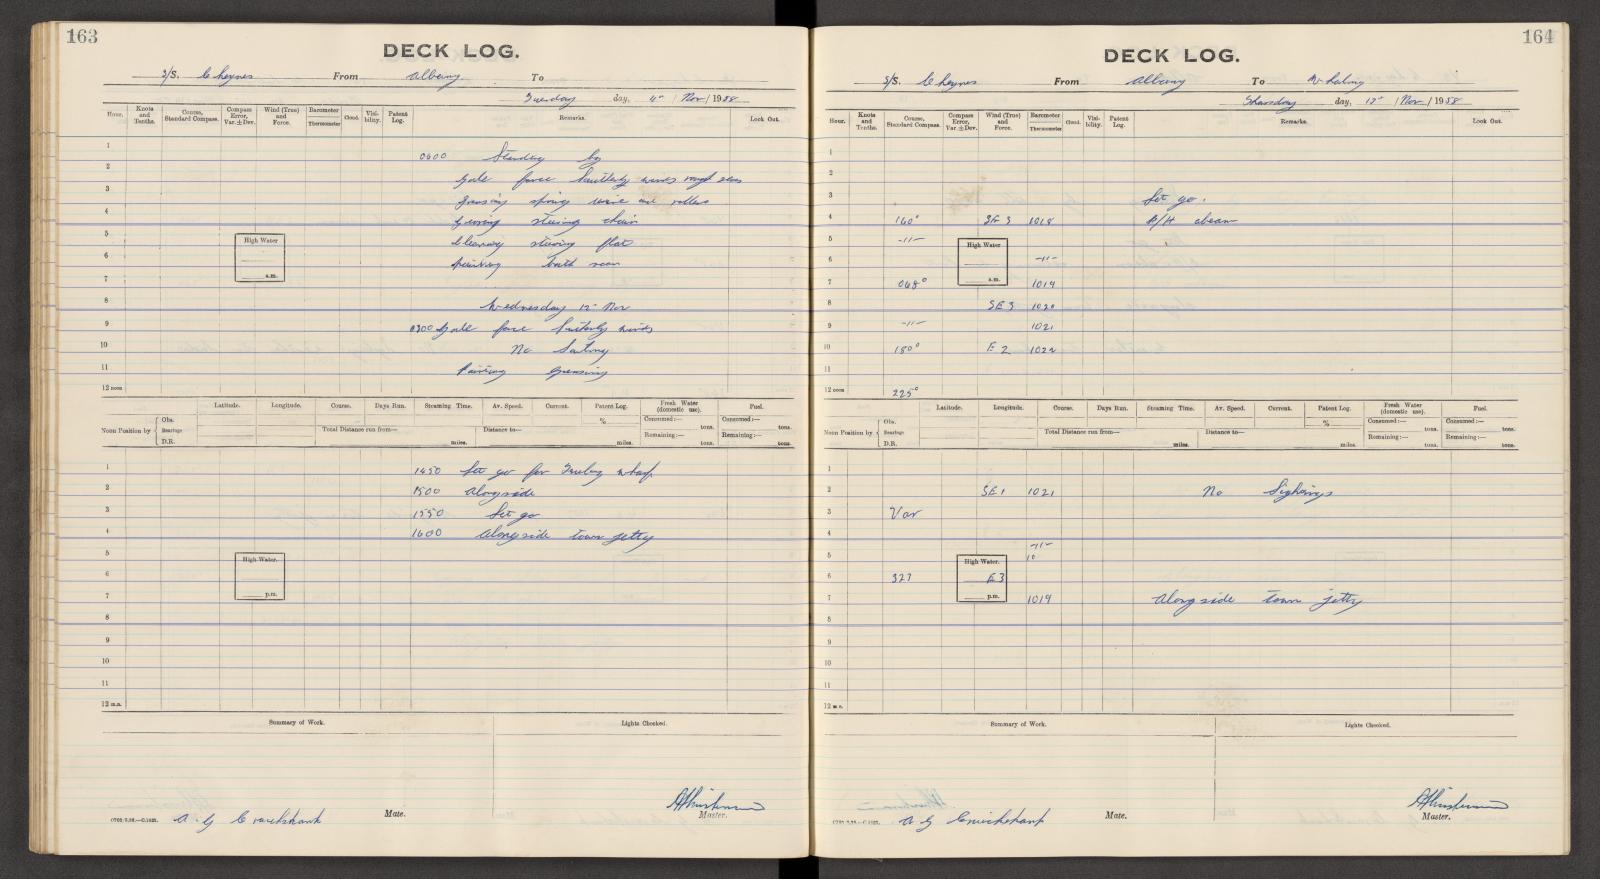 163
DECK LOG.
S/S. Cheynes From Albany To
Tuesday day, 4th / Nov / 1958
Hour. Knots and Tenths. Course, Standard Compass. Compass Error, Var. ± Dev. Wind (True) and Force. Barometer Thermometer Cloud. Visibility. Patent Log. Remarks. Look Out.
1
0600 Standing by
2
Gale force Southerly winds rough seas
3
Greasing spring wire and rollers
4
Greasing steering chain
5
Cleaning steering flat
6
Painting bath room
7
High Water
a.m.
8
Wednesday 12th Nov
9
0300 Gale force Southerly winds
10
No Sailing
11
Painting Greasing
12 noon
Latitude. Longitude. Course. Days Run. Steaming Time. Av. Speed. Current. Patent Log. Fresh Water (domestic use). Fuel.
Noon Position by Obs. Bearings D.R. Total Distance run from— miles. Distance to— miles. % Consumed:— tons. Remaining:— tons. Consumed:— tons. Remaining:— tons.
1 1450 Set go for wharf
2 1500 Alongside
3 1550 Set go
4 1600 Alongside town jetty
5
High Water.
6
p.m.
7
8
9
10
11
12 m.n.
Summary of Work. Lights Checked.
A G Cruickshank Mate.
Master.
164
DECK LOG.
S/S. Cheynes From Albany To Whaling
Thursday day, 13th / Nov / 1958
Hour. Knots and Tenths. Course, Standard Compass. Compass Error, Var. ± Dev. Wind (True) and Force. Barometer Thermometer Cloud. Visibility. Patent Log. Remarks. Look Out.
1
2
3 Set go.
4 160° SE 3 1018 B/H abeam
5 -11-
High Water
6 -11-
a.m.
7 048° 1019
8 SE 3 1020
9 -11- 1021
10 180° E 2 1022
11
12 noon 225°
Latitude. Longitude. Course. Days Run. Steaming Time. Av. Speed. Current. Patent Log. Fresh Water (domestic use). Fuel.
Noon Position by Obs. Bearings D.R. Total Distance run from— miles. Distance to— miles. % Consumed:— tons. Remaining:— tons. Consumed:— tons. Remaining:— tons.
1
2 SE 1 1021 No Sightings
3 Var
4
5 -11-
10
High Water.
6 327 E 3
p.m.
7 1019 Alongside town jetty
8
9
10
11
12 m.n.
Summary of Work. Lights Checked.
A G Cruickshank Mate.
Master.